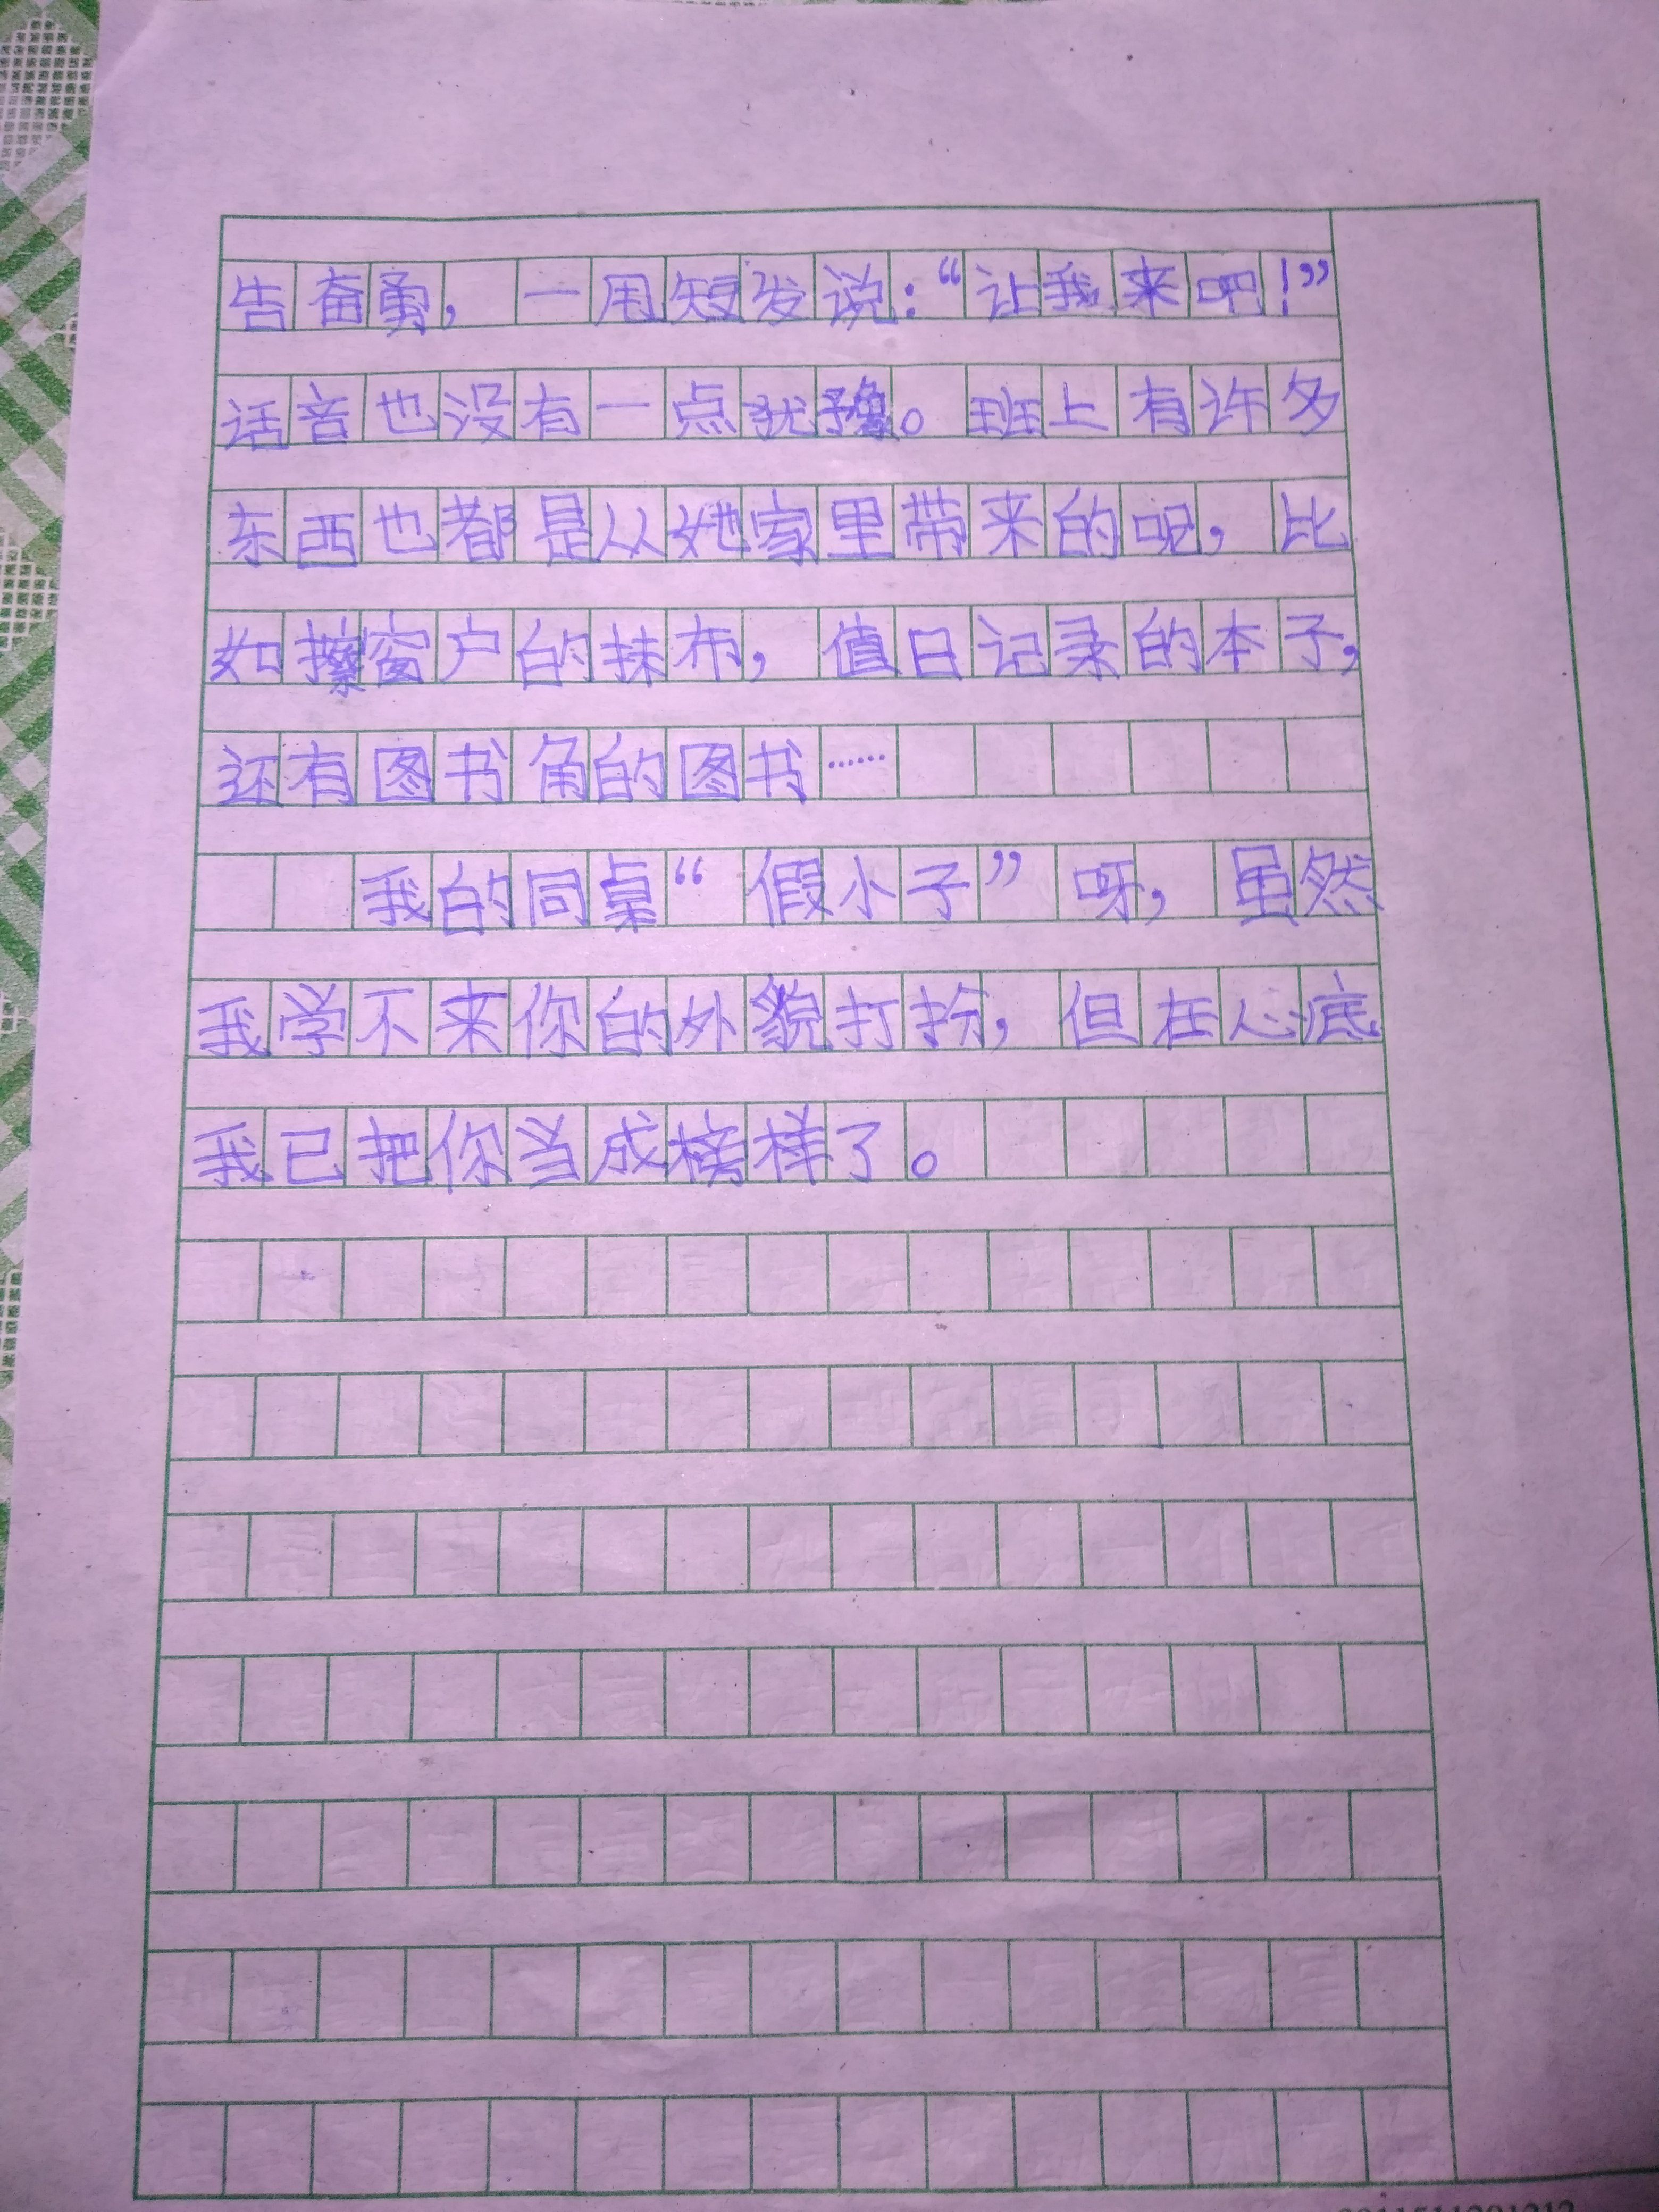 告奋勇，一甩短发说：“让我来吧！”
话音也没有一点犹豫。班上有许多
东西也都是从她家里带来的呢，比
如擦窗户的抹布，值日记录的本子，
还有图书角的图书……
我的同桌“假小子”呀，虽然
我学不来你的外貌打扮，但在心底
我已把你当成榜样了。